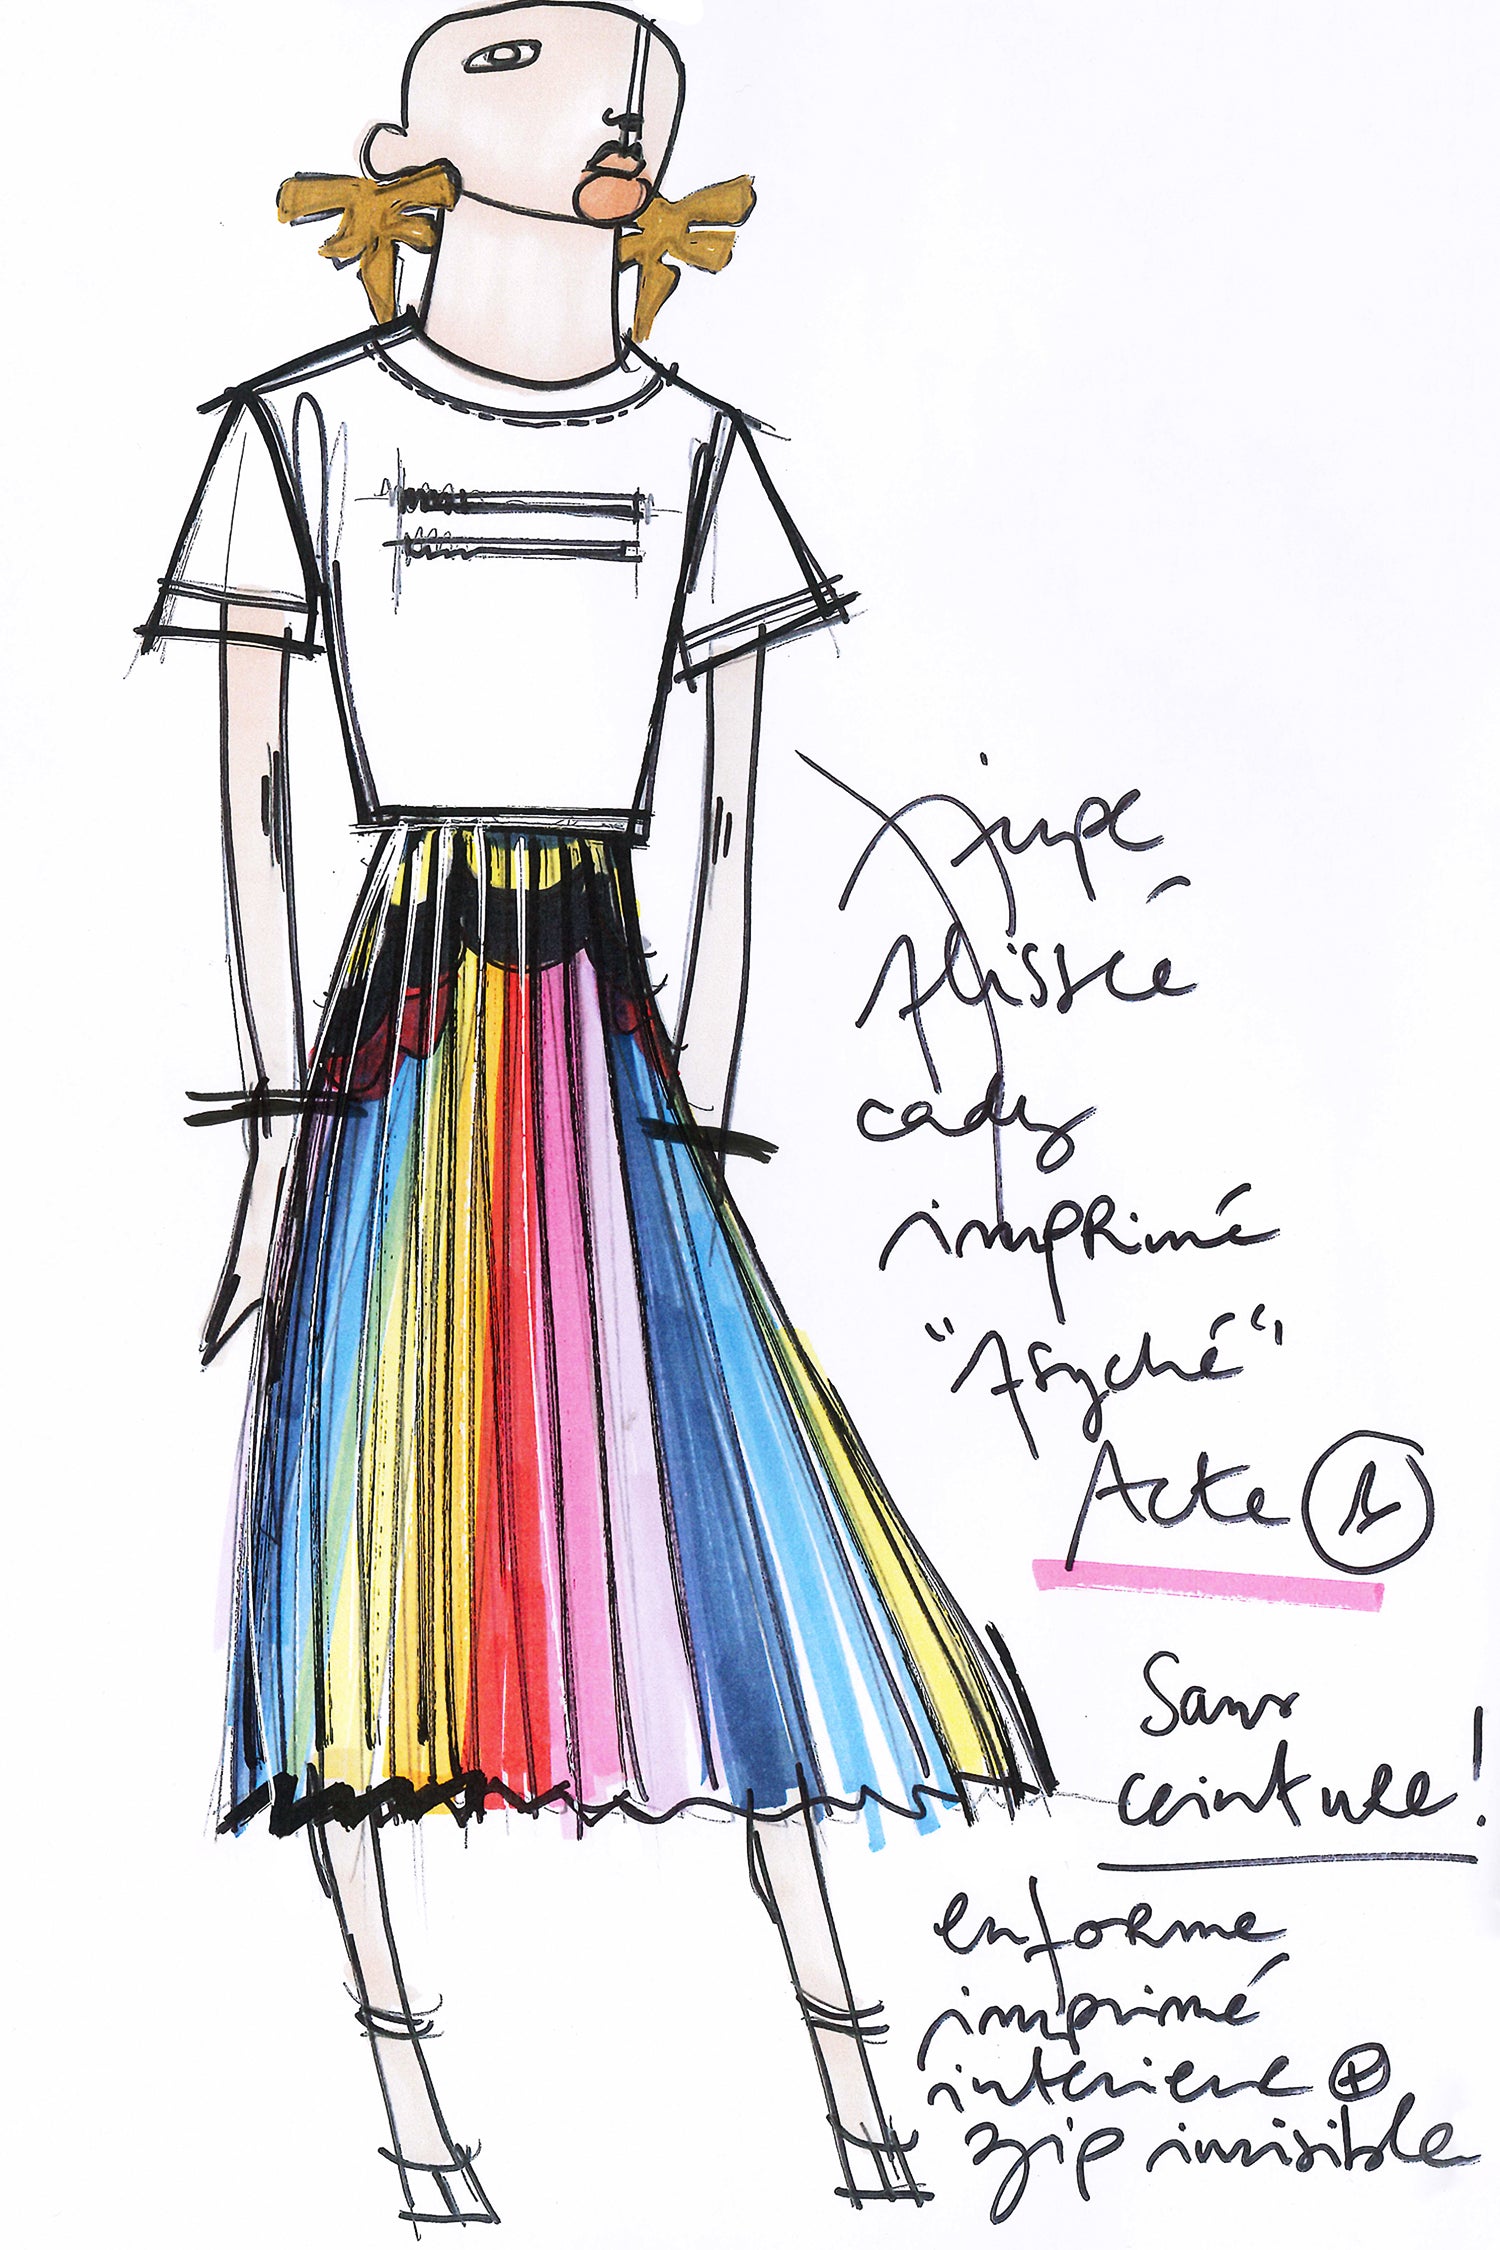 Jupe
plissée
cady
imprimé
"Psyché"
Acte 1
Sans
ceinture!
enforme
imprimé
interieure +
zip invisible